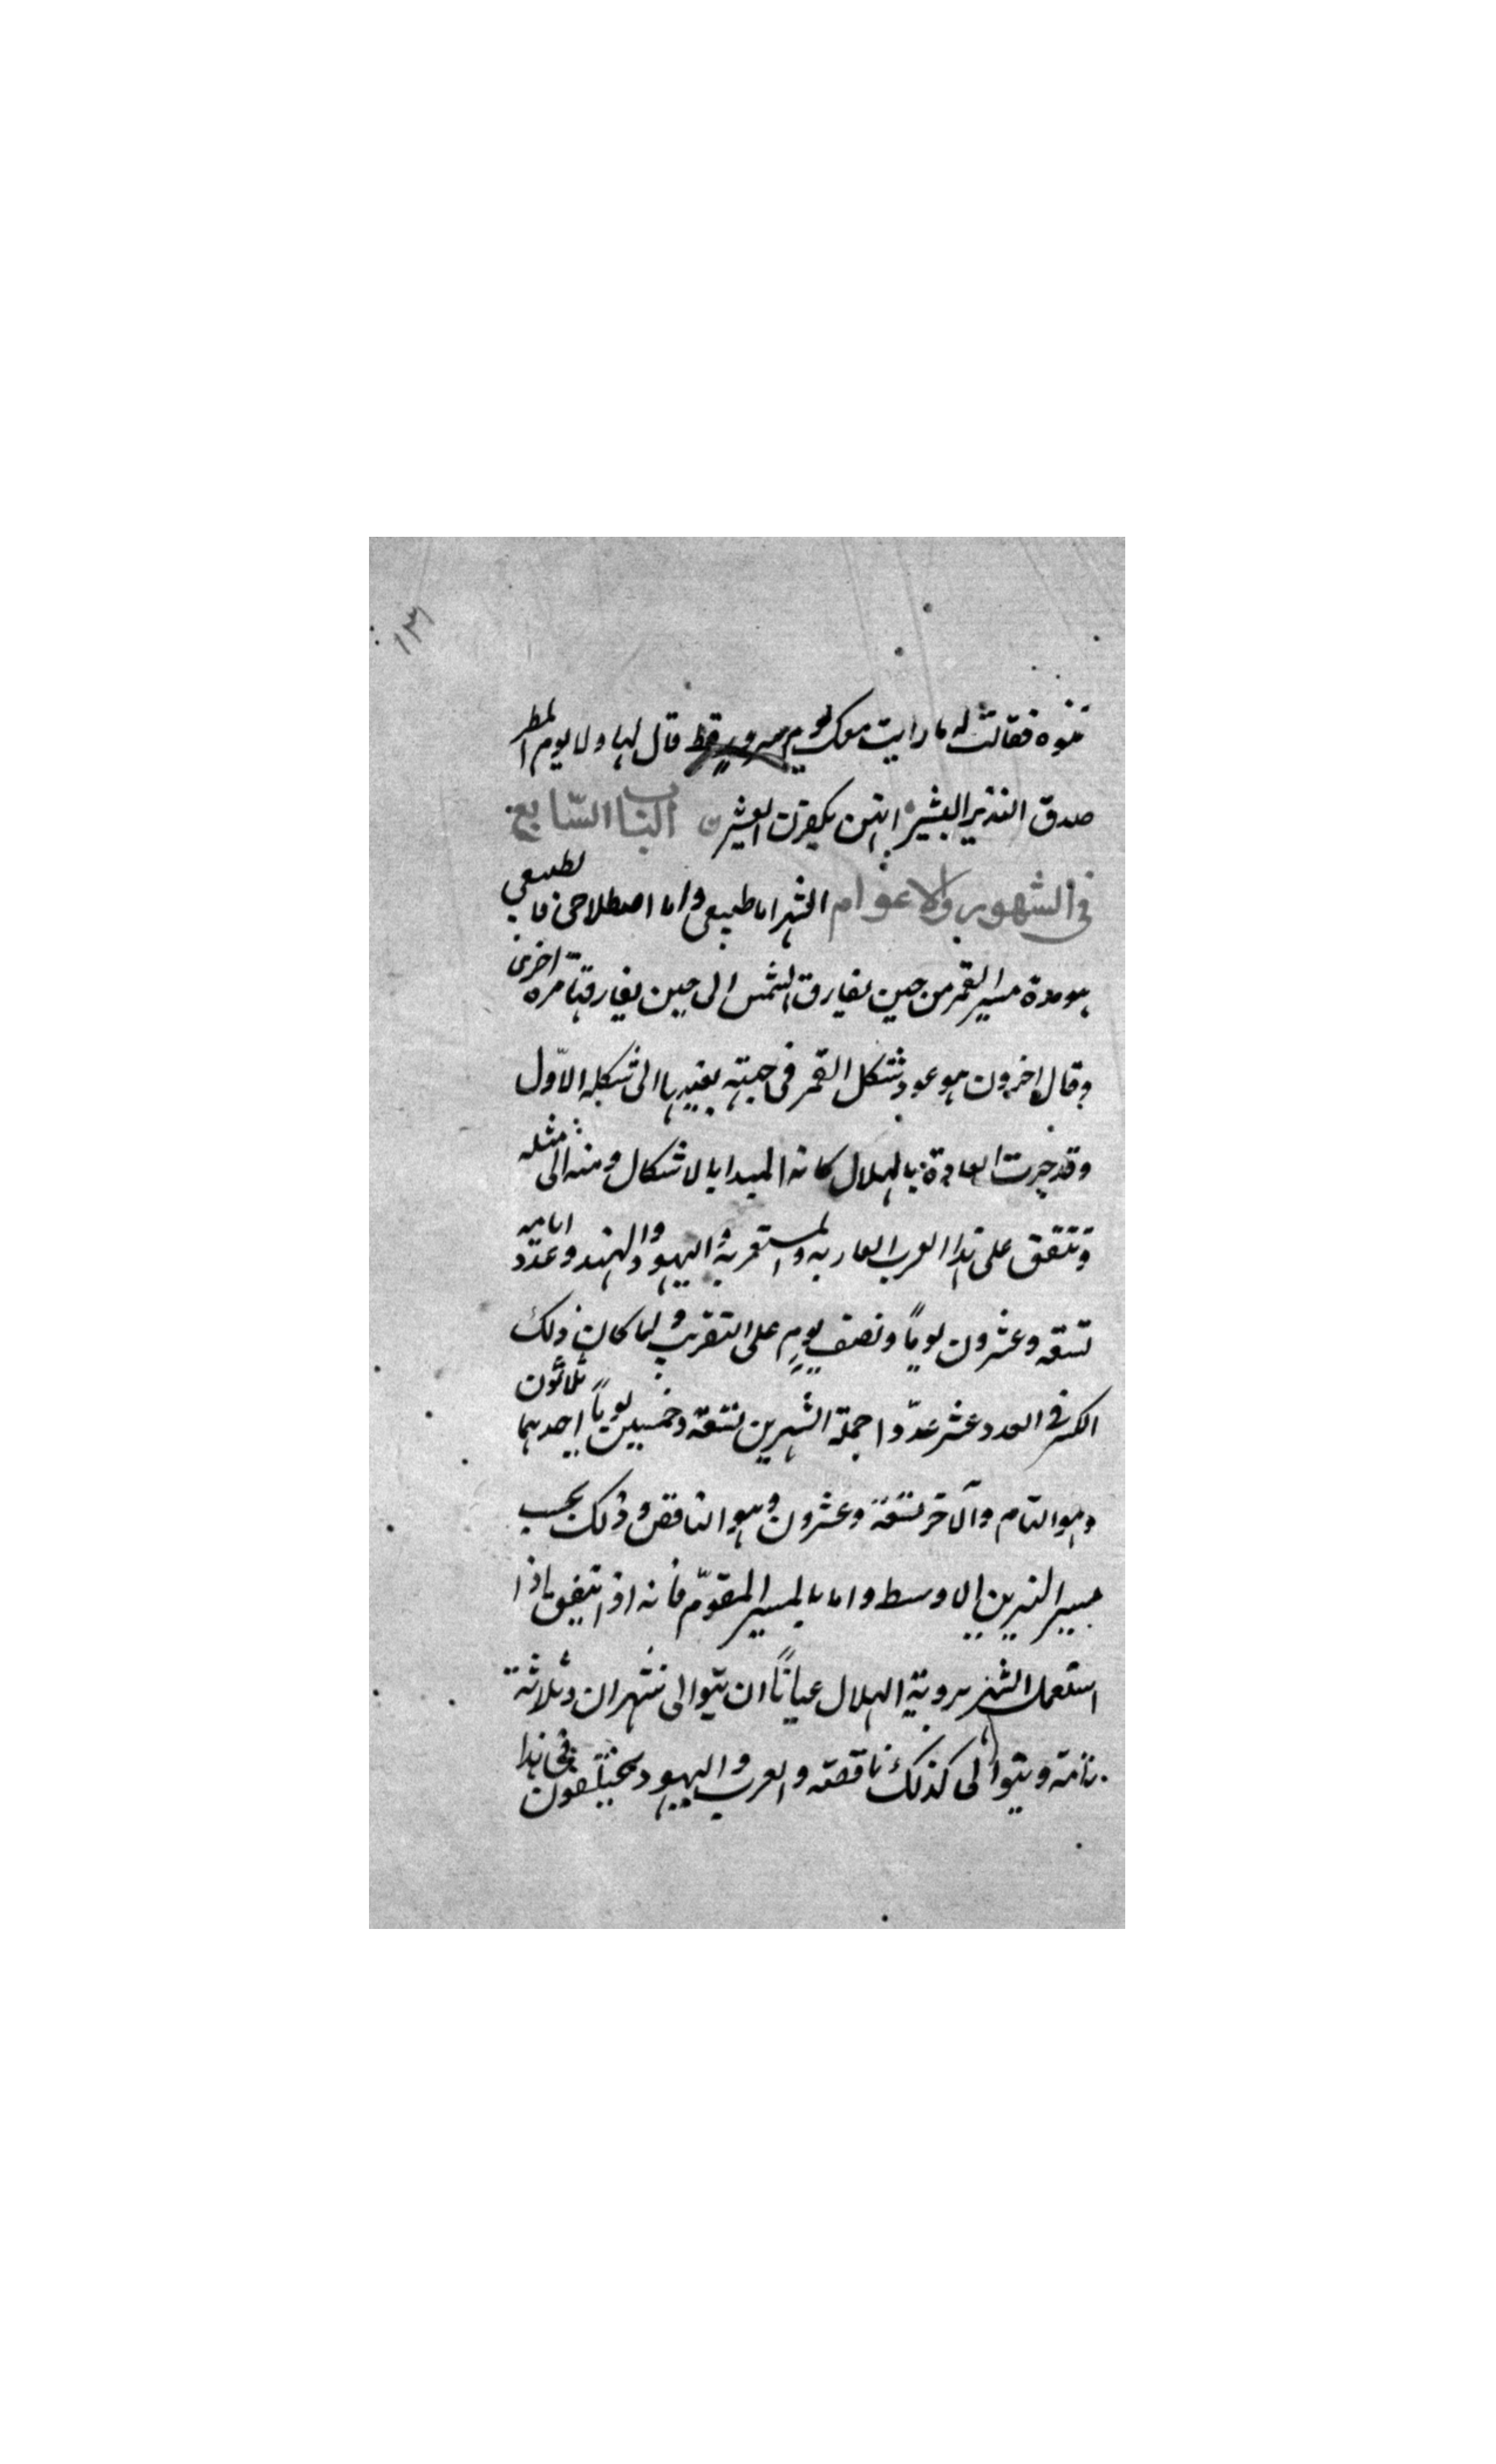 ١٣١
فقالت له ما رايت معك يوم سرور قط قال لها ولا يوم المطر
صدق النذير البشير انهن يكفرن العشير الباب السابع
في الشهور والاعوام الشهر اما طبيعي واما اصطلاحي فالطبيعي
هو مدة مسير القمر من حين يفارق الشمس الى حين يفارقها مرة اخرى
وقال اخرون هو عود شكل القمر في جهته بعينها الى شكله الاوّل
وقد جرت العادة بالهلال كانه المبدا بالاشكال ومنه الى مثله
وتتفق على هذا العرب العاربه والمستعربه واليهود والهند وعدد ايامه
تسعه وعشرون يوماً ونصف يومٍ على التقريب ولما كان ذلك
الكسر في العدد عشر عدّوا جملة الشهرين تسعة وخمسين يوماً احدهما ثلاثون
وهو التام والآخر تسعة وعشرون وهو الناقص وذلك بحسب
مسير النيرين الاوسط واما بالمسير المقوّم فانه اذ اتيفق اذا
استعمل الشهر بروية الهلال عياناً ان يتوالى شهران وثلاثة
تامة ويتوالى كذلك ناقصه والعرب واليهود يختلفون في هذا